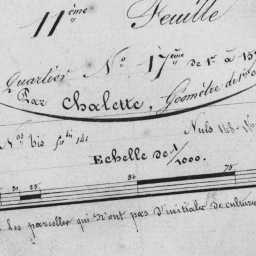 11ème Feuille
Quartier No 17ème de 1re à 15
Par Chalette, Géomètre de 1re
Nos bis
Nuls 148
Echelle de 1/1000.
50 75
Les parcelles qui n'ont pas d'initiale de culture